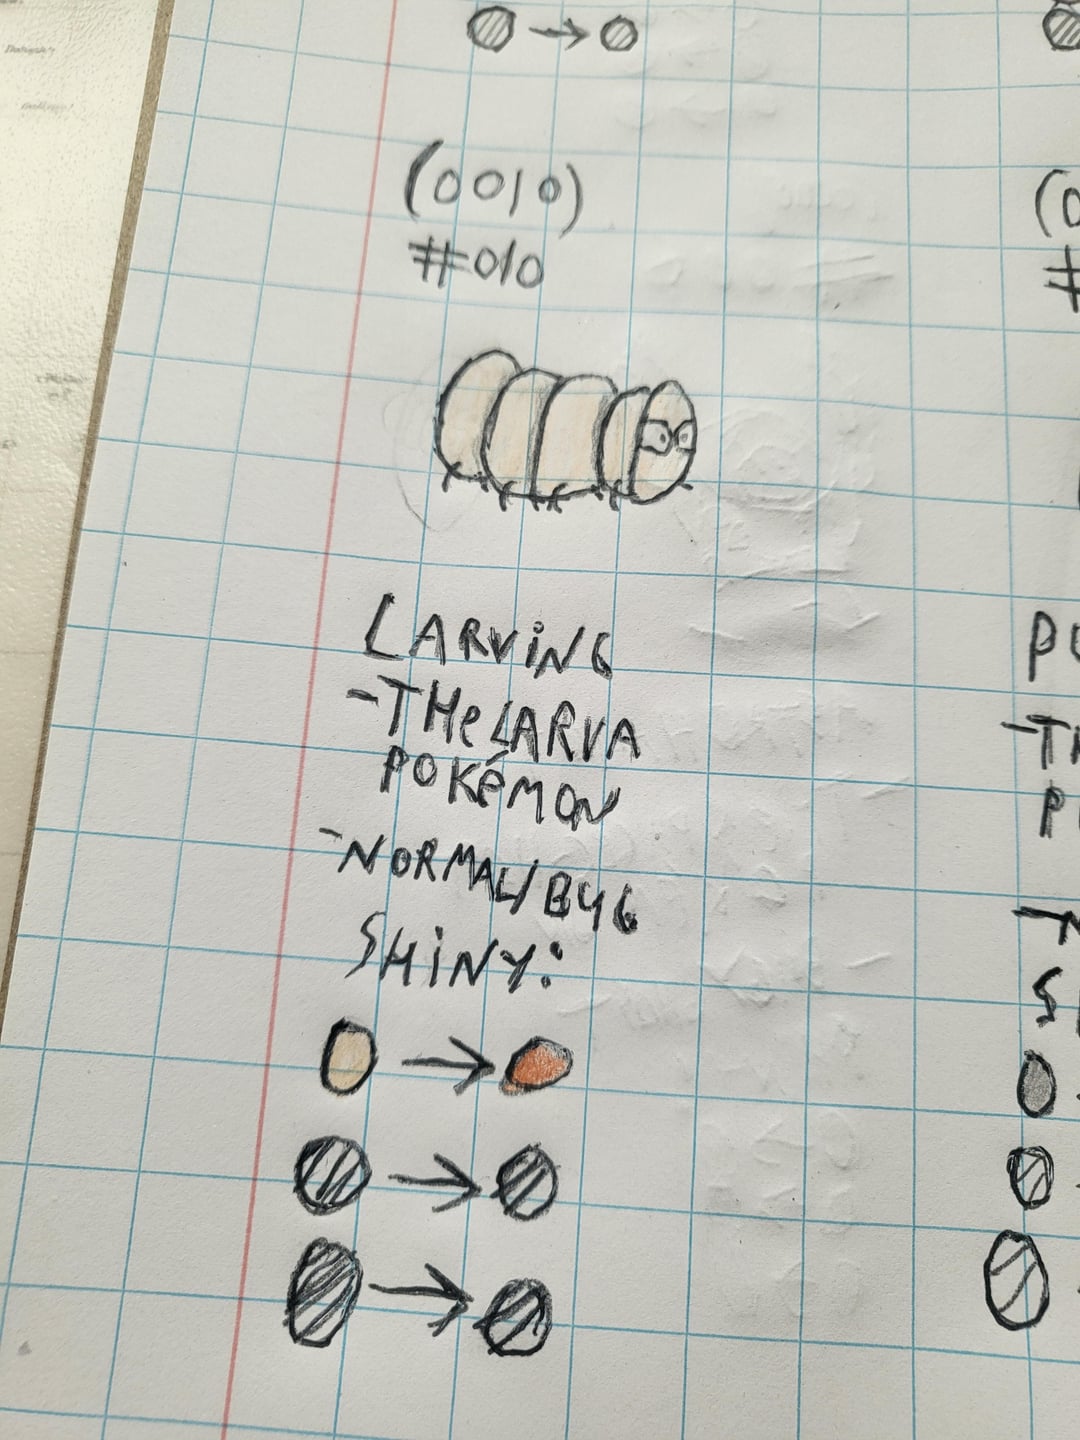 (0010)
#010
LARViNG
-THe LARVA
POKéMON
-NORMAL/BUG
SHiNY: